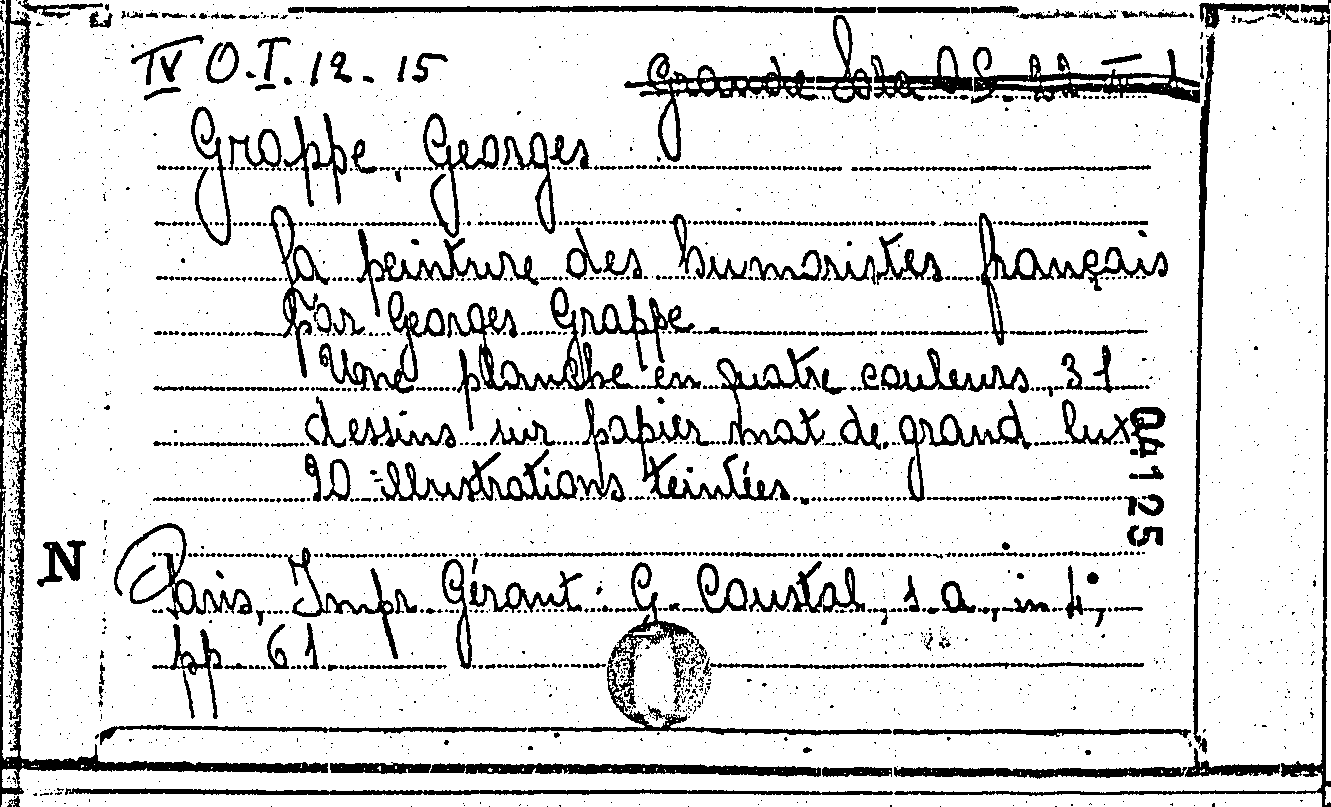 IV O.I.12.15
Grande Sala
Grappe, Georges
La peinture des humoristes français
par Georges Grappe.
Une planche en quatre couleurs, 31
dessins sur papier mat de grand luxe
90 illustrations teintées.
04125
N
Paris, Impr. Gérant: G. Coustal, s.a., in 4°,
pp. 61